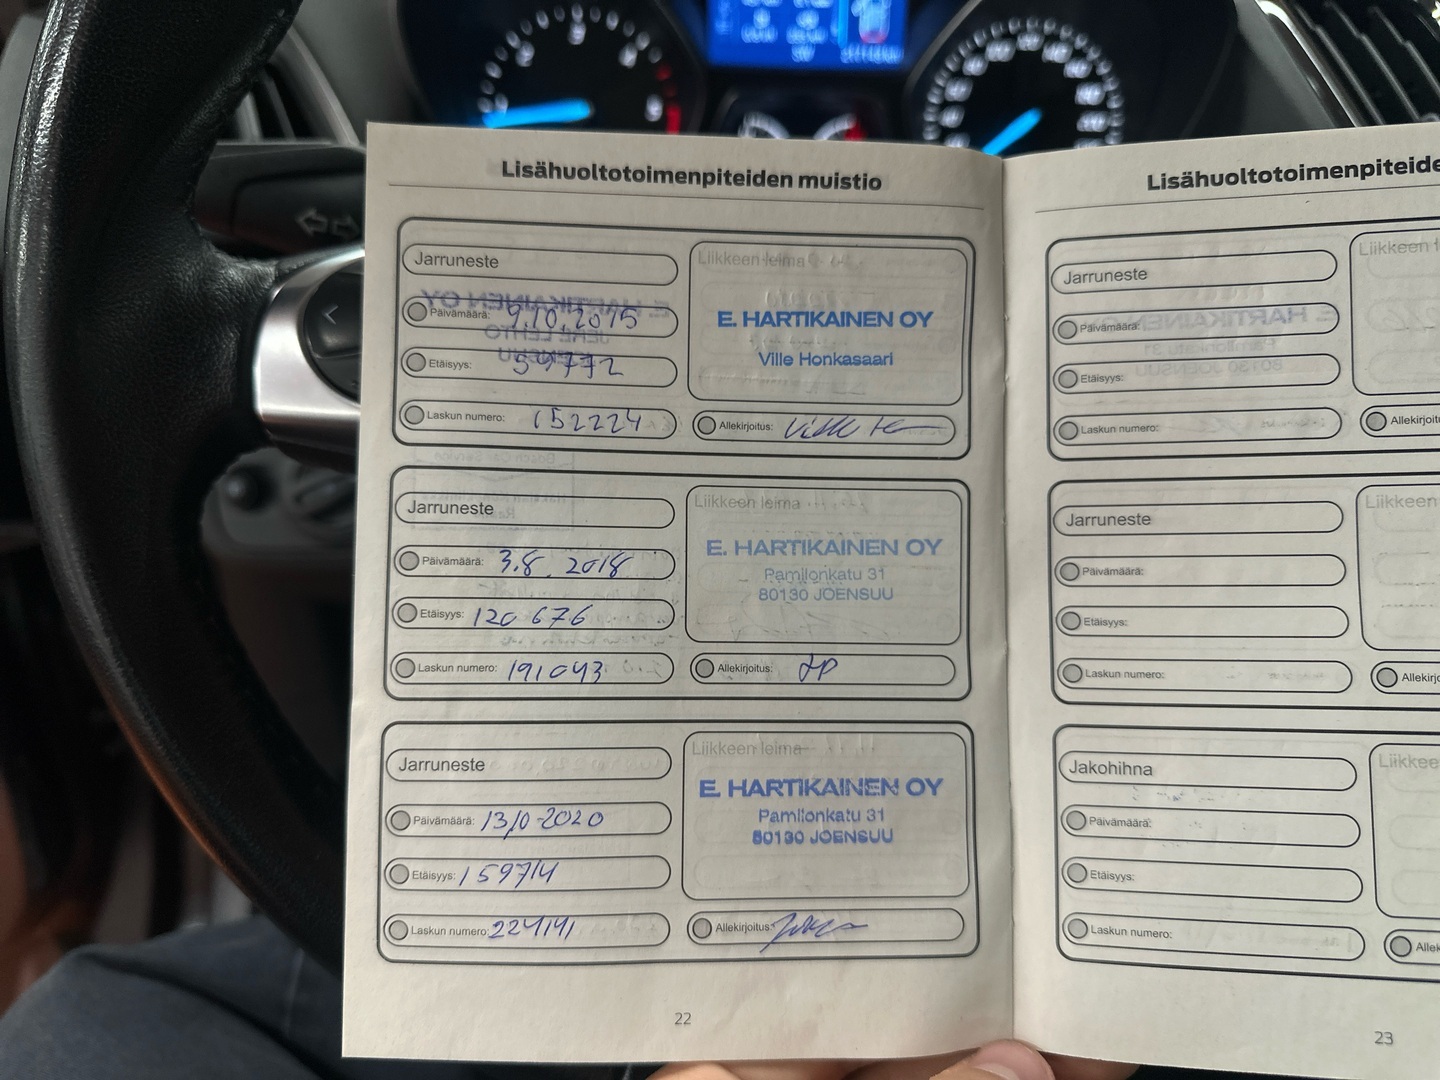 Lisähuoltotoimenpiteiden muistio
Jarruneste
Päivämäärä: 9.10.2015
Etäisyys: 59772
Laskun numero: 152224
Liikkeen leima
E. HARTIKAINEN OY
Ville Honkasaari
Allekirjoitus:
Jarruneste
Päivämäärä: 3.8.2018
Etäisyys: 120 676
Laskun numero: 191043
Liikkeen leima
E. HARTIKAINEN OY
Pamilonkatu 31
80130 JOENSUU
Allekirjoitus: JP
Jarruneste
Päivämäärä: 13/10-2020
Etäisyys: 159714
Laskun numero: 224141
Liikkeen leima
E. HARTIKAINEN OY
Pamilonkatu 31
80130 JOENSUU
Allekirjoitus:
22
Lisähuoltotoimenpiteide
Jarruneste
Päivämäärä:
Etäisyys:
Laskun numero:
Liikkeen l
Allekirjoitu
Jarruneste
Päivämäärä:
Etäisyys:
Laskun numero:
Liikkeen
Allekirjo
Jakohihna
Päivämäärä:
Etäisyys:
Laskun numero:
Liikkee
Allek
23